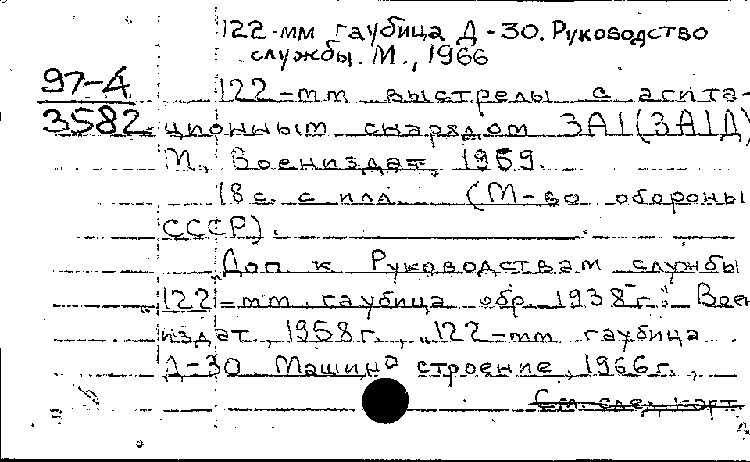 122-мм гаубица Д-30. Руководство
службы. М., 1966
97-4
3582
122-мм выстрелы с агита-
ционным снарядом 3А1(3А1Д)
М., Воениздат, 1969.
18 с. с илл. (М-во обороны
СССР).
"Доп. к Руководствам службы
"122-мм гаубица обр. 1938 г." Воен
издат, 1958 г., "122-мм гаубица
Д-30 Машиностроение, 1966 г.,
См. след. карт.